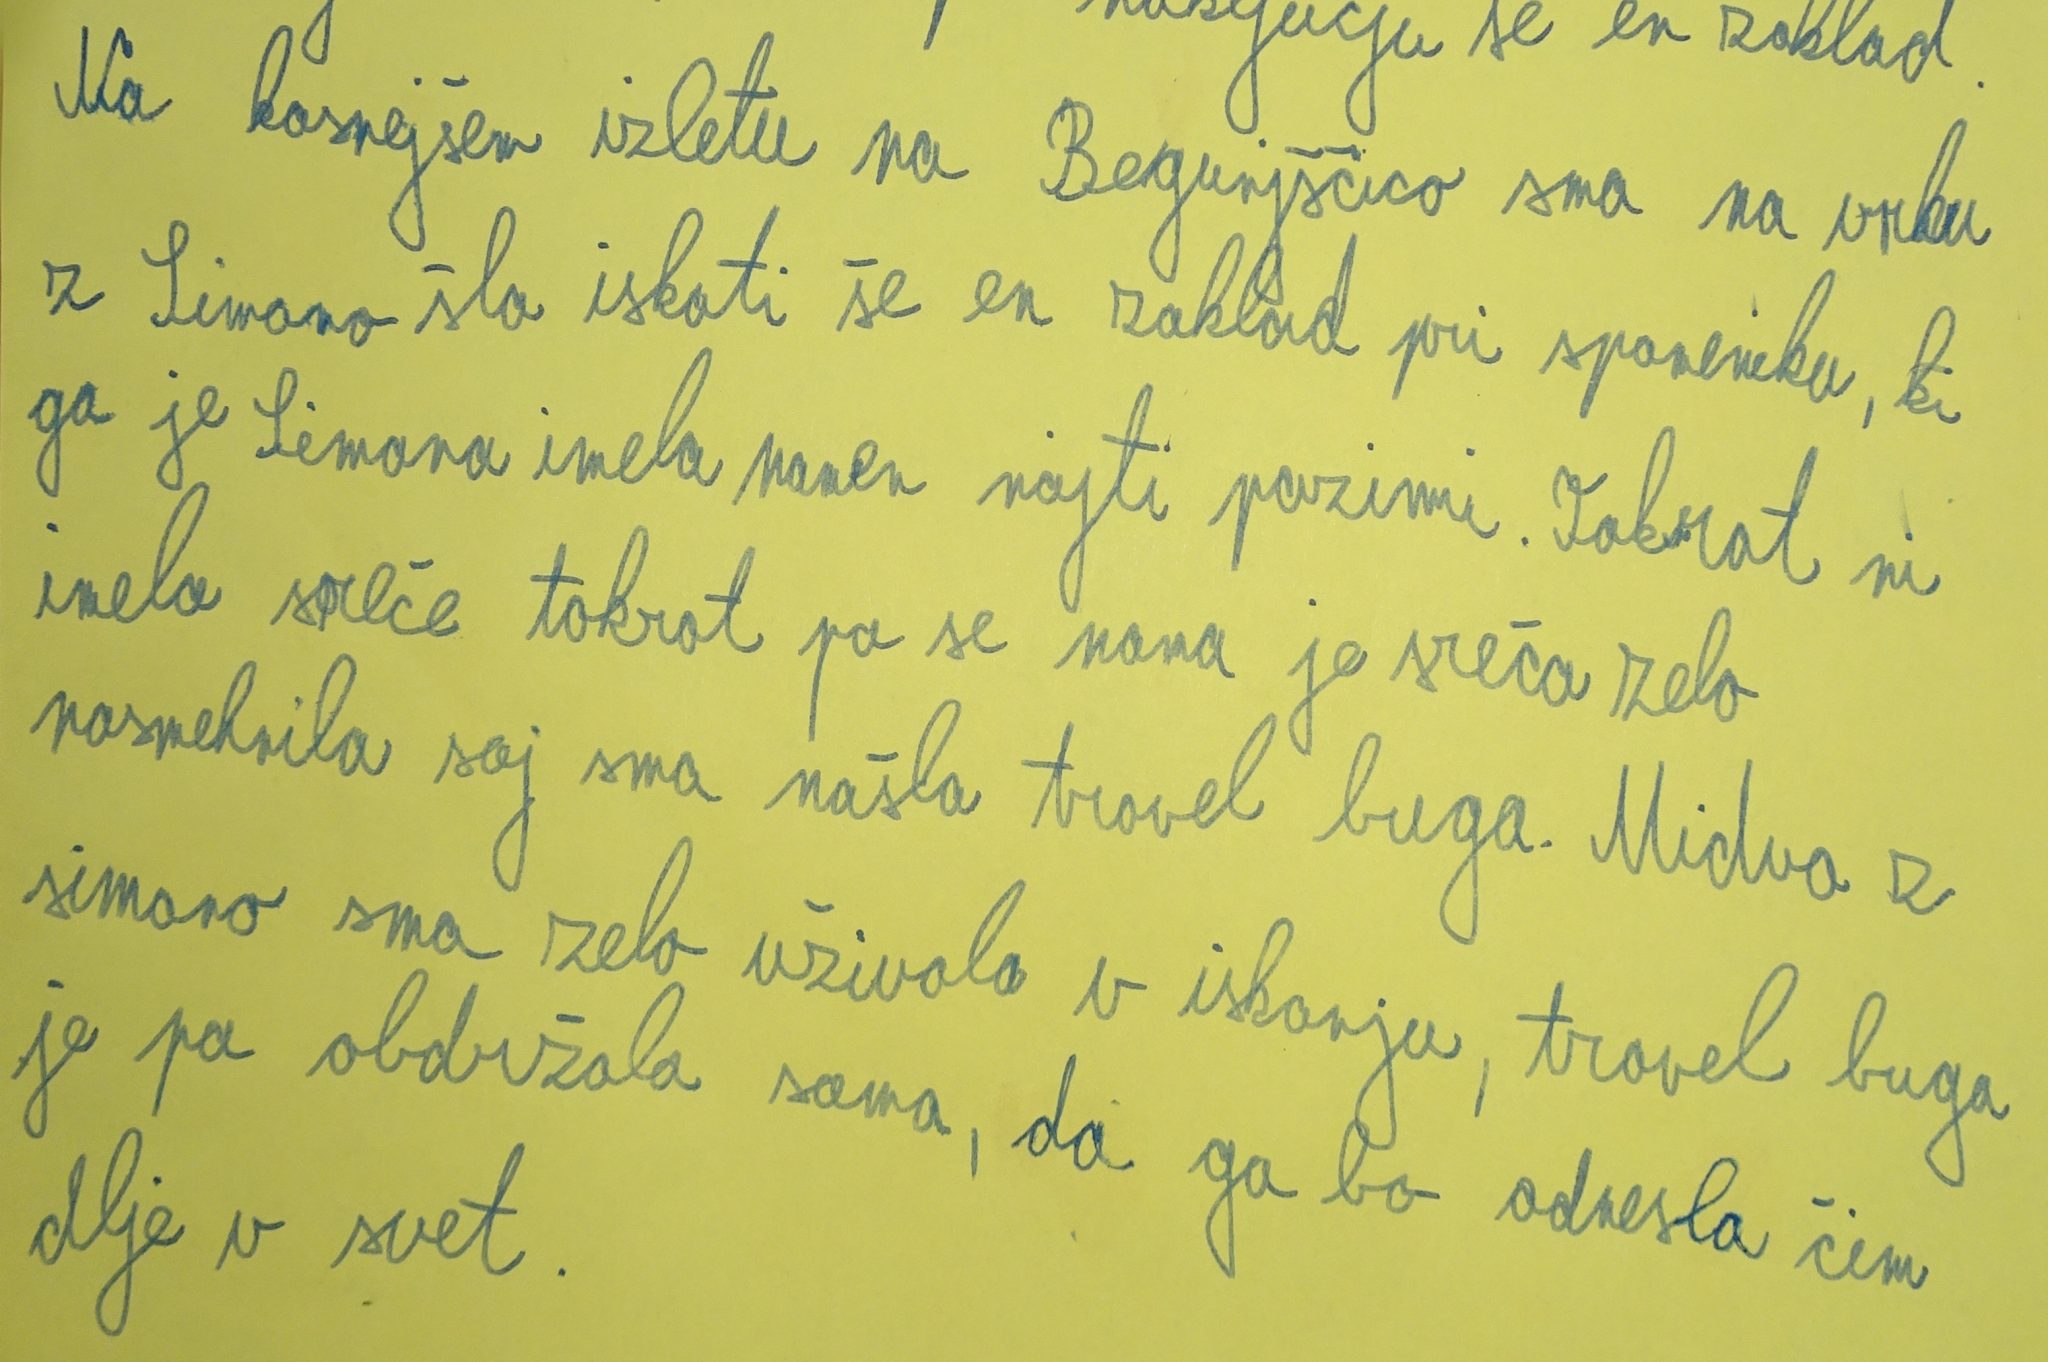 še en zaklad.
Na kasnejšem izletu na Begunjščico sma na vrhu
z Simono šla iskati še en zaklad pri spomeniku, ki
ga je Simona imela namen najti pozimi. Takrat ni
imela sreče tokrat pa se nama je sreča zelo
nasmehnila saj sma našla travel buga. Midva z
simono sma zelo uživala v iskanju, travel buga
je pa obdržala sama, da ga bo odnesla čim
dlje v svet.